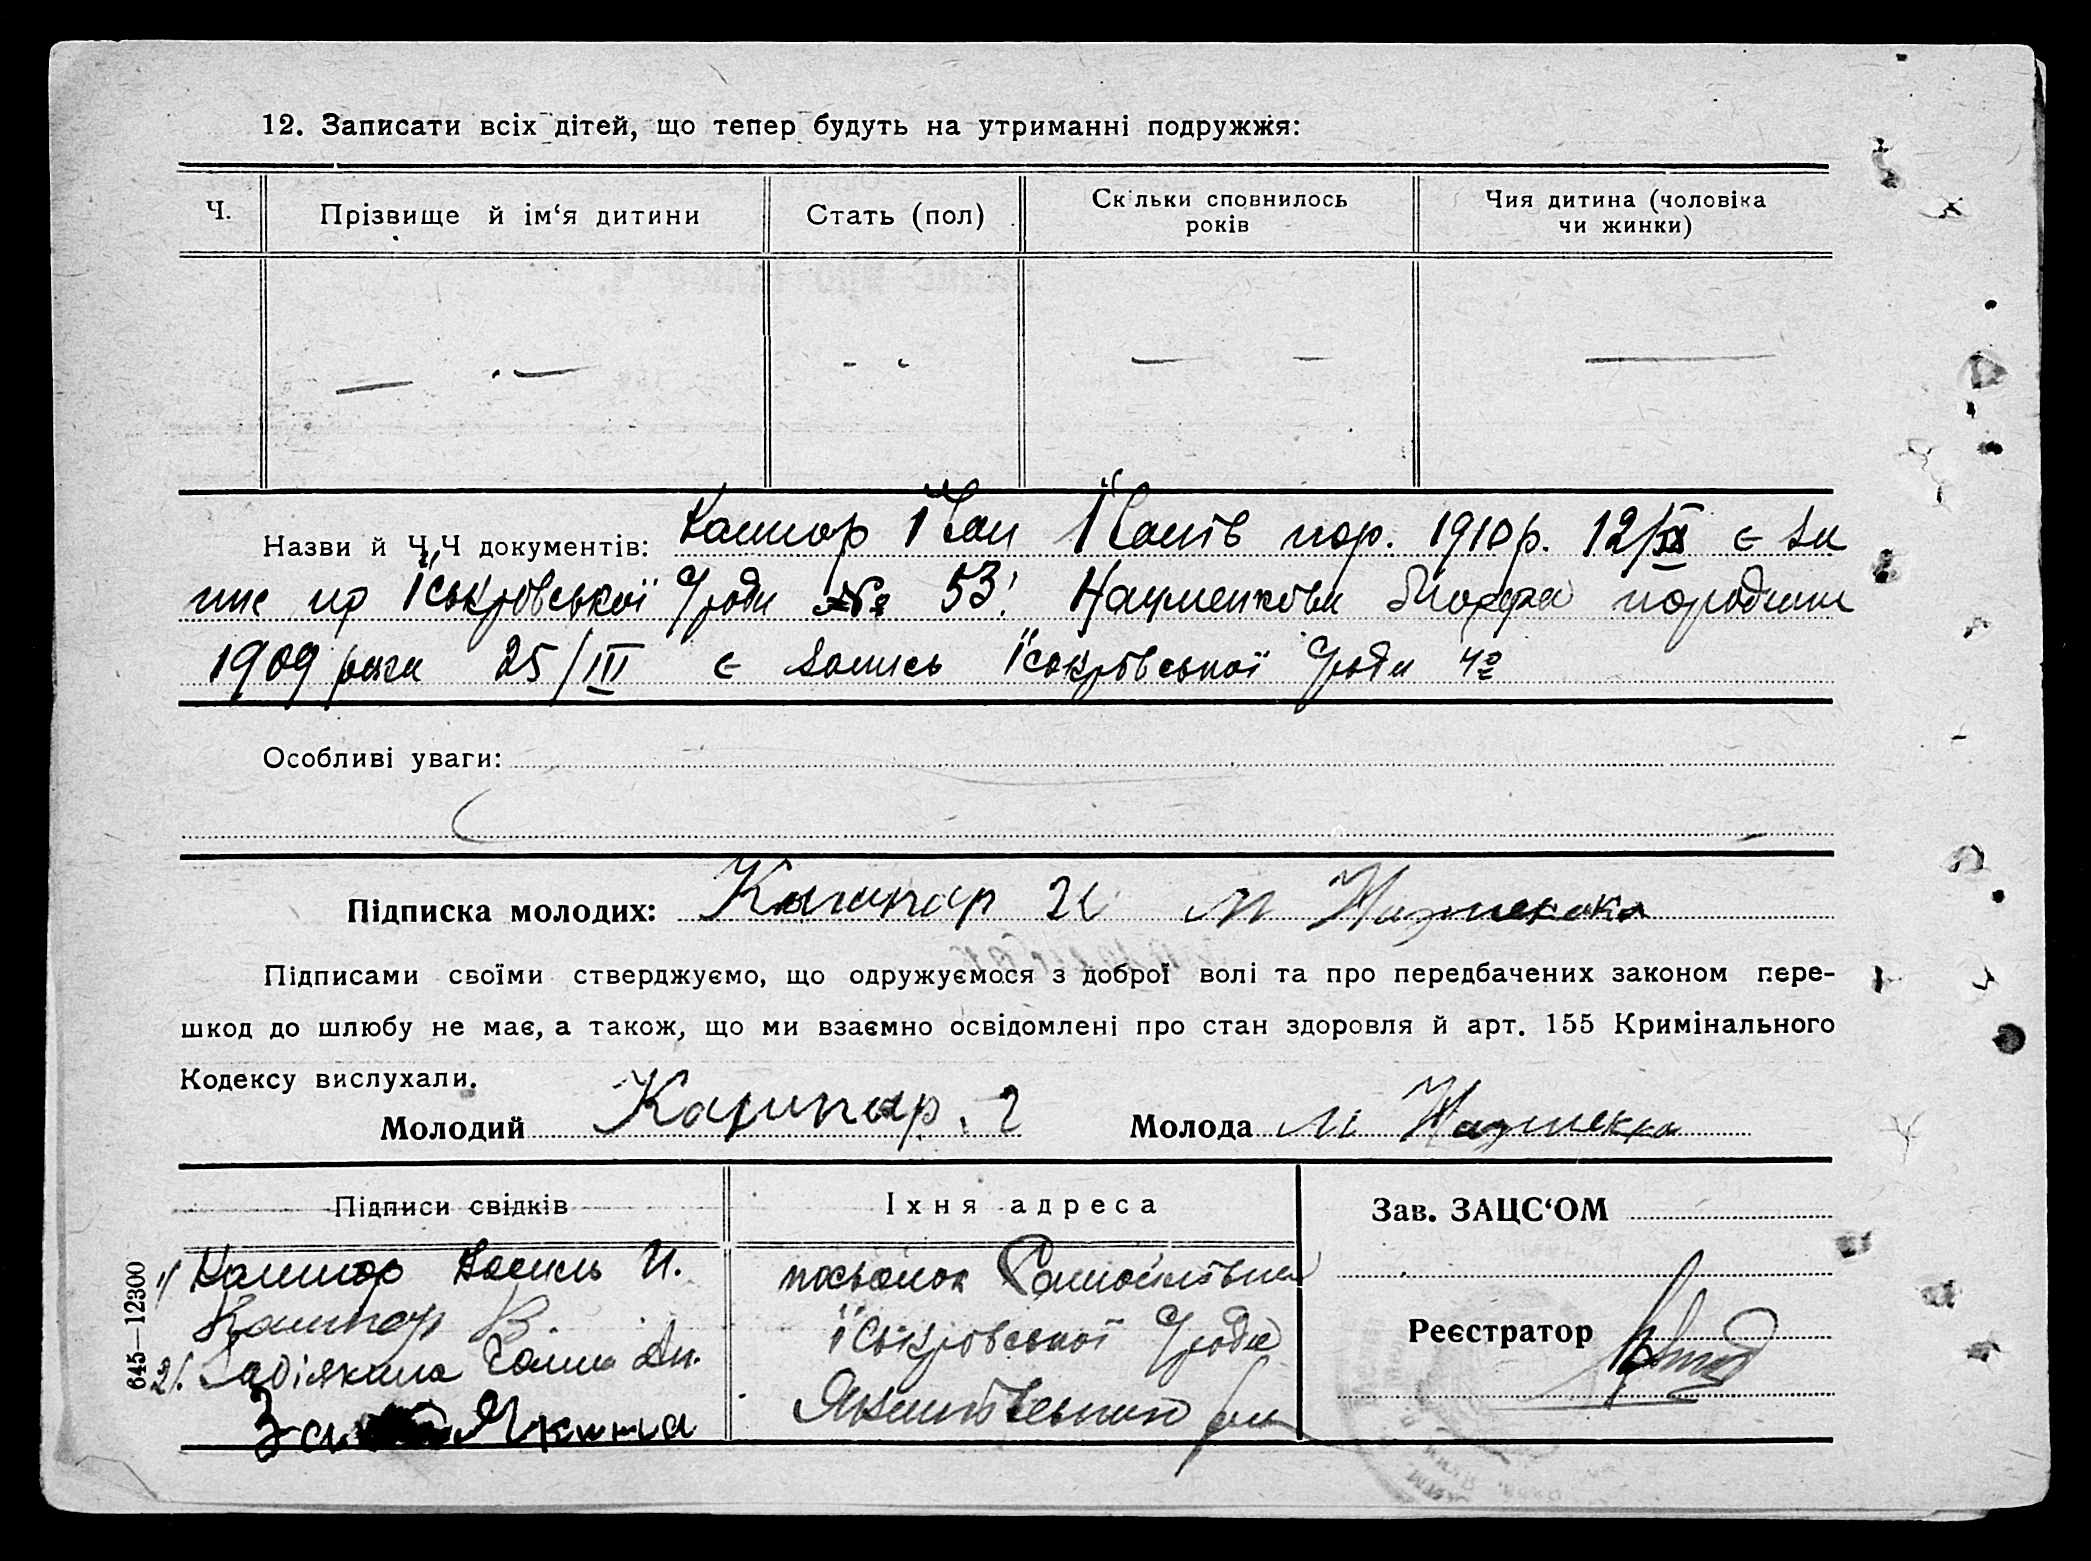 12. Записати всіх дітей, що тепер будуть на утриманні подружжя:
Ч.
Прізвище й ім'я дитини
Стать (пол)
Скільки сповнилось років
Чия дитина (чоловіка чи жинки)
Назви й Ч,Ч документів: Кашпар Іван Іванів нар. 1910 р. 12/IX є за
пис пр Їськрівської № 53. Науменкова Марфа народжен
1909 року 25/III є запись Їськрівської
Особливі уваги:
Підписка молодих: Кашпар И М Науменкова
Підписами своїми стверджуємо, що одружуємося з доброї волі та про передбачених законом пере-
шкод до шлюбу не має, а також, що ми взаємно освідомлені про стан здоровля й арт. 155 Кримінального
Кодексу вислухали.
Молодий Кашпар. Молода М Науменко
Підписи свідків
Іхня адреса
Зав. ЗАЦС'ОМ
1/ Кашпар Василь И.
Кашпар В.
2/. Ан.
посьолок
Їськрівської
Реєстратор
645—12300